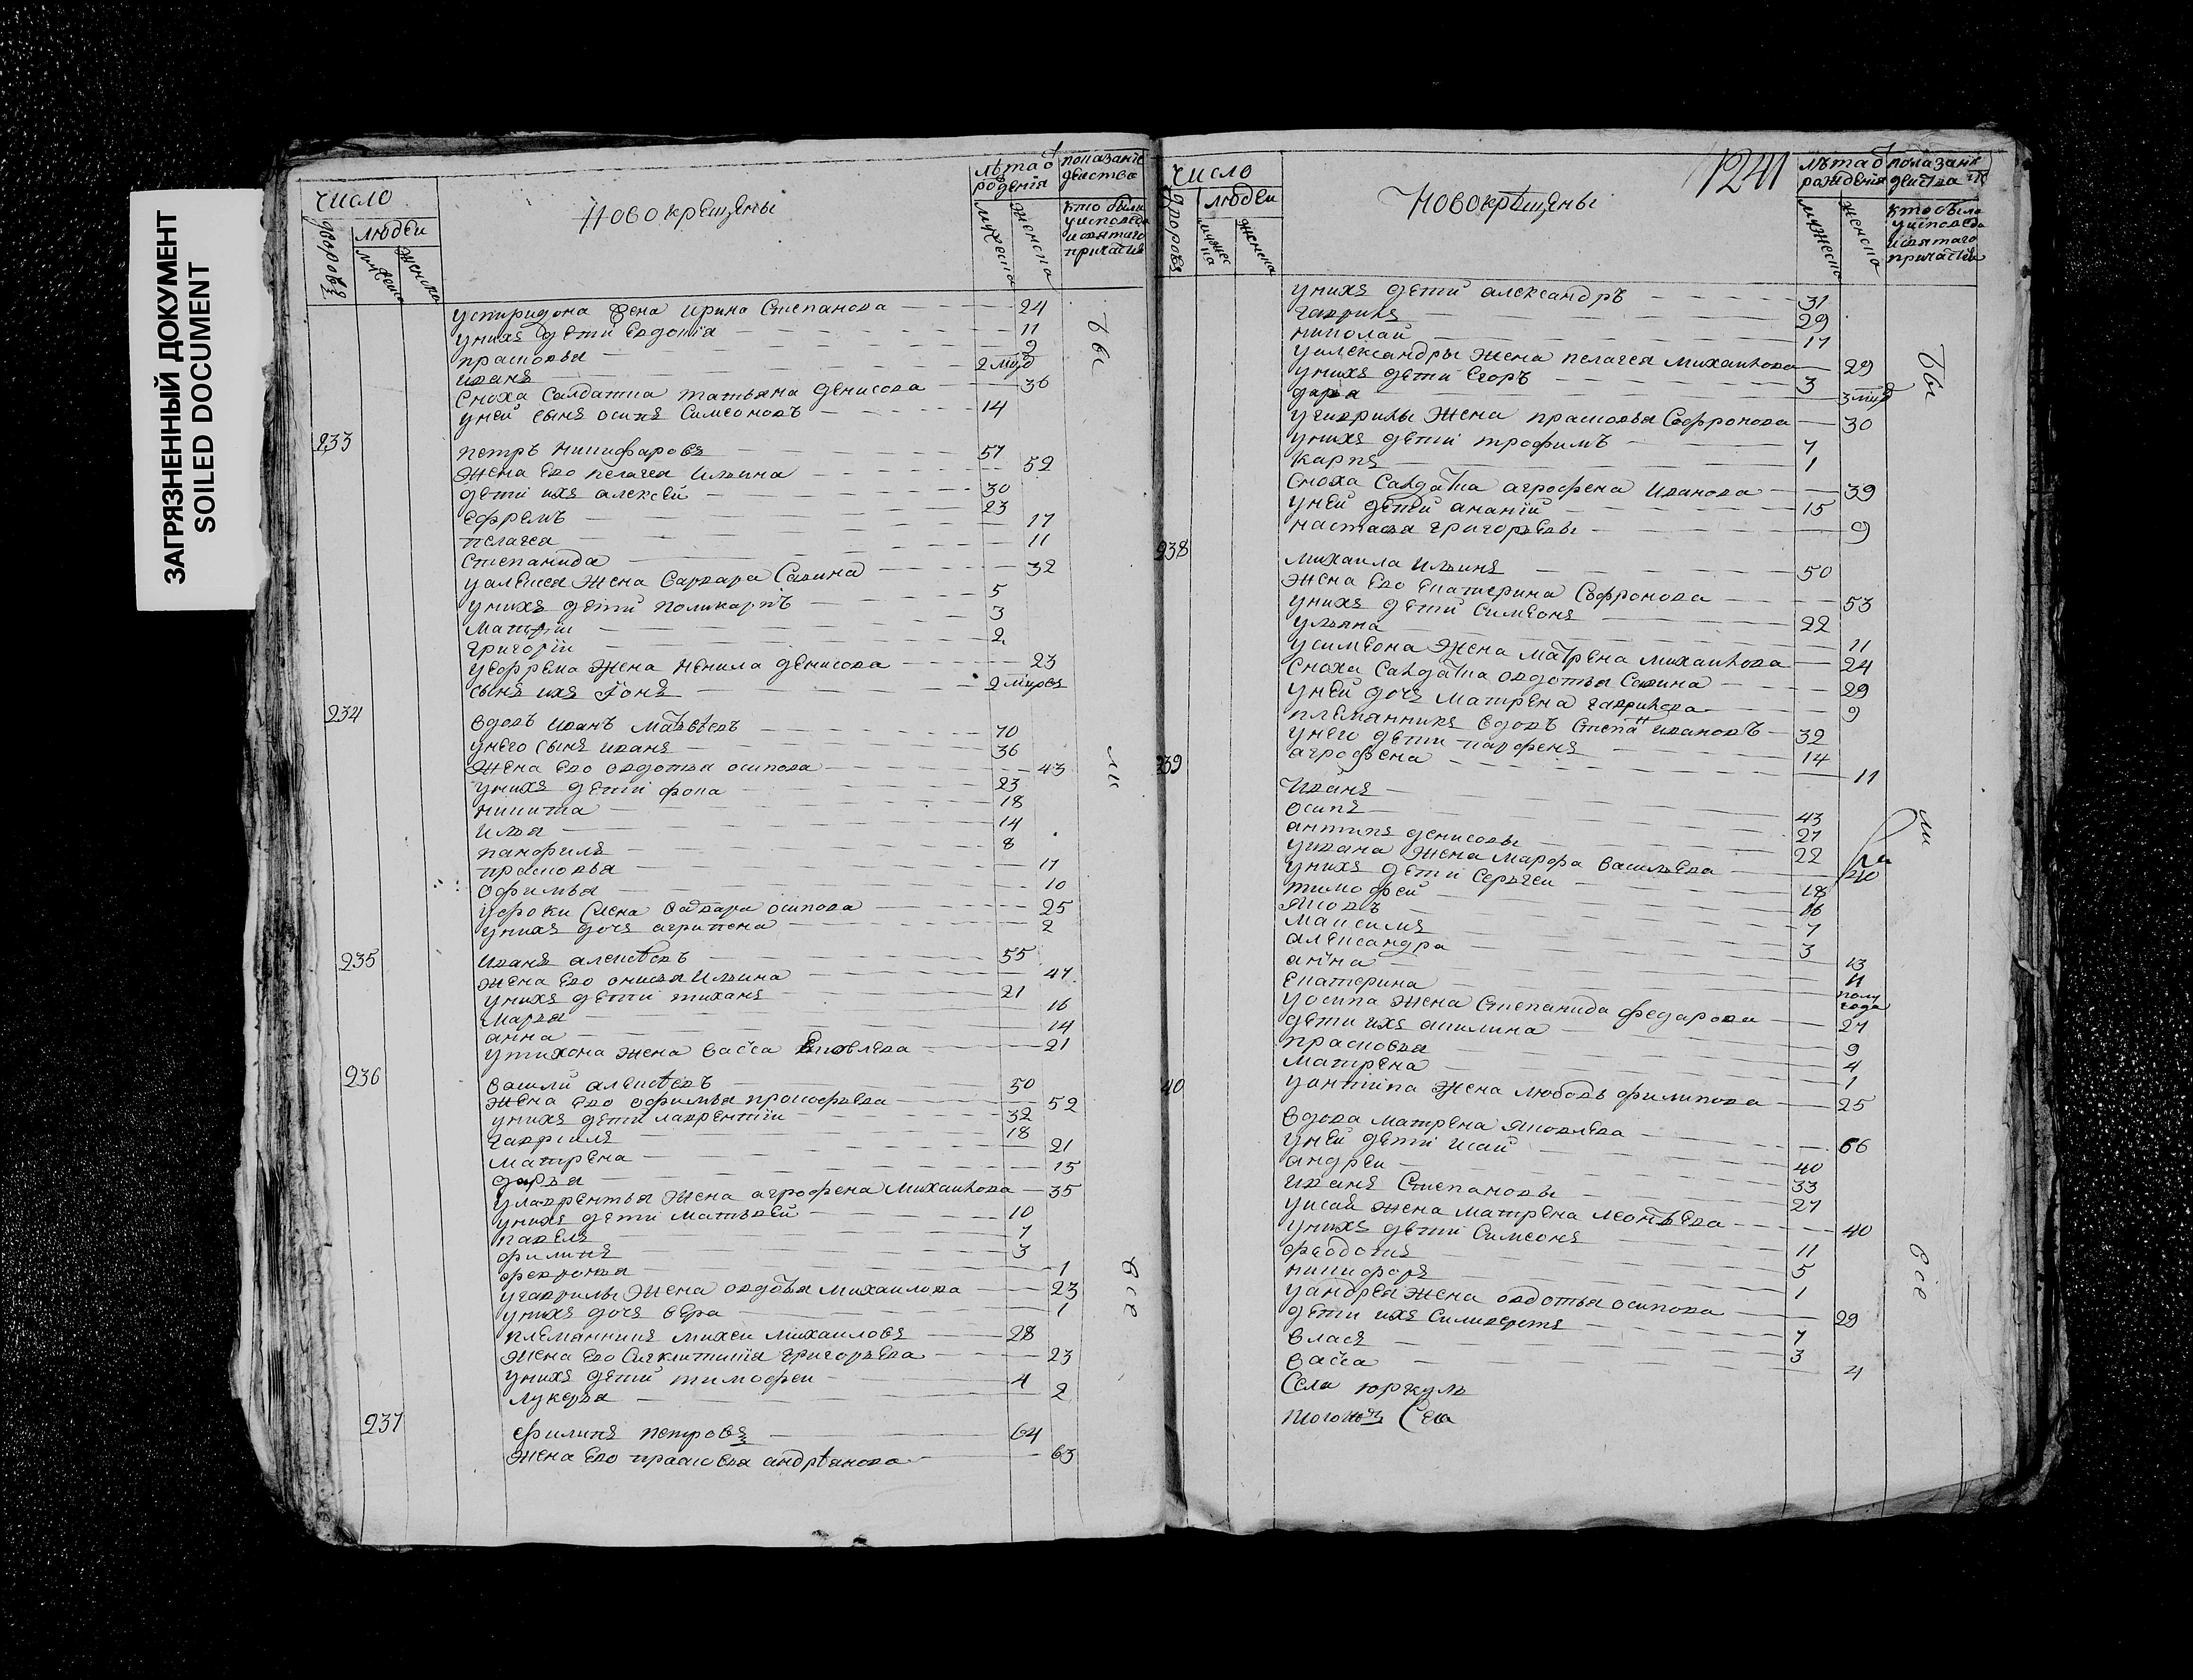 ЗАГРЯЗНЕННЫЙ ДОКУМЕНТ
SOILED DOCUMENT
число
дворовъ
людеи
мужеска
женска
Новокрещены
лѣта от
родения
мужеска
женска
показание
действа
кто были
у исповеди
и святаго
причастия
у спиридона жена ирина Степанова 24
у нихъ дети евдокия 11
прасковья 9
иванъ 2 мцд
сноха салдатка татьяна денисова 36
у ней сынъ осипъ Симеоновъ 14
бы
233 петръ никифоровъ 57
жена ево пелагея ильина 52
дети ихъ алексеи 30
ефремъ 23
пелагея 17
степанида 11
у алексея жена варвара Савина 32
у нихъ дети поликарпъ 5
матфiи 3
григорiи 2
у ефрема жена ненила денисова 23
сынъ ихъ Iонъ 2 мцовъ
234 вдовъ иванъ матвѣевъ 70
у него сынъ иванъ 36
жена ево овдотья осипова 43
у нихъ дети фока 23
никита 18
илья 14
панфилъ 8
прасковья 17
офимья 10
у фоки жена варвара осипова 25
у нихъ дочь агрипена 2
ли
235 иванъ алексѣевъ 55
жена ево анисья ильина 47
у нихъ дети тиханъ 21
марья 16
анна 14
у тихона жена васса Яковлева 21
236 васили алексѣевъ 50
жена ево офимья прокофьева 52
у нихъ дети лаврентiи 32
гаврiилъ 18
матрена 21
дарья 15
у лаврентья жена агрофена михаилова 35
у нихъ дети матвѣеи 10
павелъ 7
филипъ 3
феврония 1
у гаврилы жена овдотья михаилова 23
у нихъ дочь вера 1
племянникъ михеи михаиловъ 28
жена ево Сигклитикiя григорьева 23
у нихъ дети тимофеи 4
лукерья 2
все
237 филипъ петровъ 64
жена ево прасковья андрѣянова 63
число
дворовъ
людеи
мужеска
женска
Новокрѣщены
1241
лѣта от
рождения
мужеска
женска
показание
действа
кто были
у исповеди
и святаго
причастия
у нихъ дети александръ 31
гаврила 29
николаи 17
у александры жена пелагея михаилова 29
у нихъ дети егоръ 3
дарья 3 мцд
у гаврилы жена прасковья Софронова 30
у нихъ дети трофимъ 7
карпъ 1
сноха салдатка агрофена иванова 39
у ней дети ананiи 15
настасья григорьевы 9
бы
238 михаила ильинъ 50
жена ево екатерина Софронова 53
у нихъ дети симеонъ 22
ульяна 11
у симеона жена матрена михаилова 24
сноха салдатка овдотья Савина 29
у ней дочь матрена гаврилова 9
племянникъ вдовъ степанъ ивановъ 32
у него дети парфенъ 14
агрофена 11
239 Иванъ 43
осипъ 27
антипъ денисовы 22
у ивана жена марфа васильева 40
у нихъ дети сергеи 18
тимофеи 16
яковъ 7
максимъ 3
александра 13
анна 11
екатерина полу года
у осипа жена степанида федарова 27
дети ихъ акилина 9
прасковья 4
матрена 1
у антипа жена любовь филипова 25
ли
40 вдова матрена яковлева 66
у ней дети исаи 40
андреи 33
иванъ Степановы 27
у исая жена матрена леонтьева 40
у нихъ дети симеонъ 11
феодотъ 5
никифоръ 1
у андрея жена овдотья осипова 29
дети ихъ Силивертъ 7
власъ 3
васса 4
все
Села юркуль